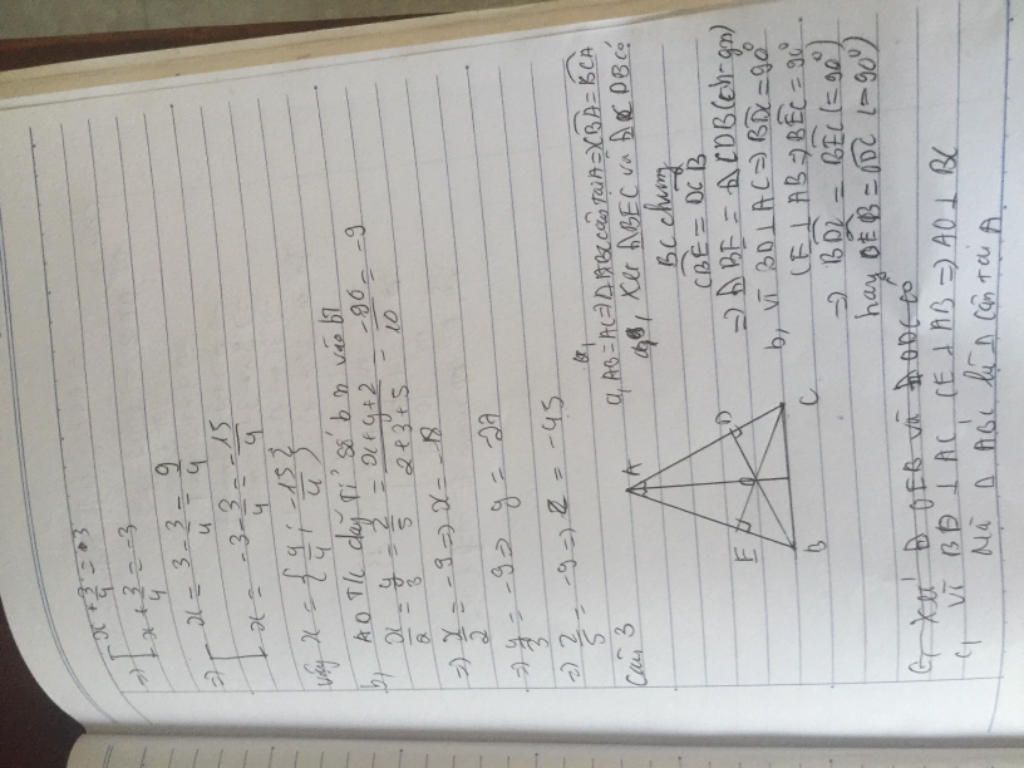 ⇒ [ x + 3/4 = 3
x + 3/4 = -3
⇒ [ x = 3 - 3/4 = 9/4
x = -3 - 3/4 = -15/4
vậy x = { 9/4 ; -15/4 }
b, AD T/c dãy tỉ số b n vào bt
x/2 = y/3 = z/5 = x+y+z / 2+3+5 = -90/10 = -9
⇒ x/2 = -9 ⇒ x = -18
⇒ y/3 = -9 ⇒ y = -27
⇒ z/5 = -9 ⇒ z = -45
Câu 3
A
E
D
B
C
a, AB = AC ⇒ Δ ABC cân tại A ⇒ CBA = BCA
Xét ΔBEC và Δ CDB có
BC chung
CBE = DCB
⇒ Δ = Δ CDB (ch-gn)
b, vì BD ⊥ AC ⇒ BDC = 90°
CE ⊥ AB ⇒ BEC = 90°
⇒ BDC = BEC (= 90°)
hay OEB = ODC (= 90°)
c, Xét Δ OEB và Δ ODC có
c, vì BD ⊥ AC CE ⊥ AB ⇒ AO ⊥ BC
Mà Δ ABC là Δ cân tại A